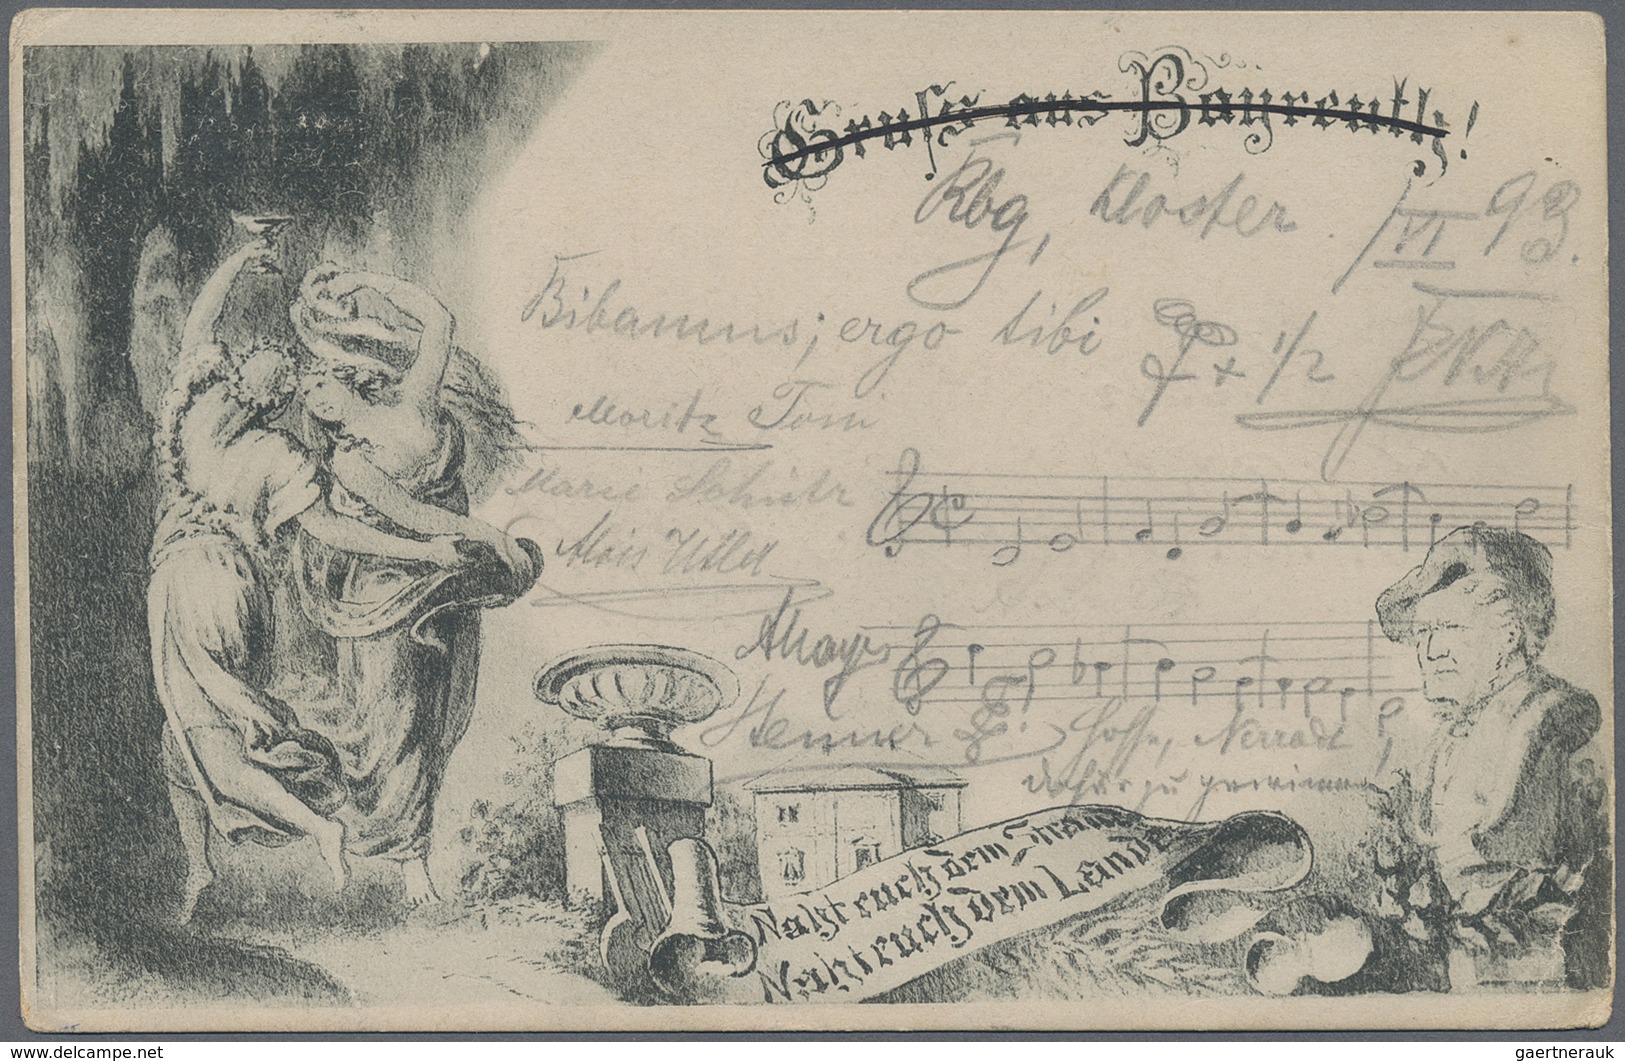 Gruss aus Bayreuth!
Kbg, Kloster 1/VI 93.
Bibamus; ergo tibi
1/2
Moritz Toni
Marie Schütz
Alois
Mayer
Henner
dafür zu gewinnen
Naht euch dem Strande
Naht euch dem Lande
delcampe.net
gaertnerauk